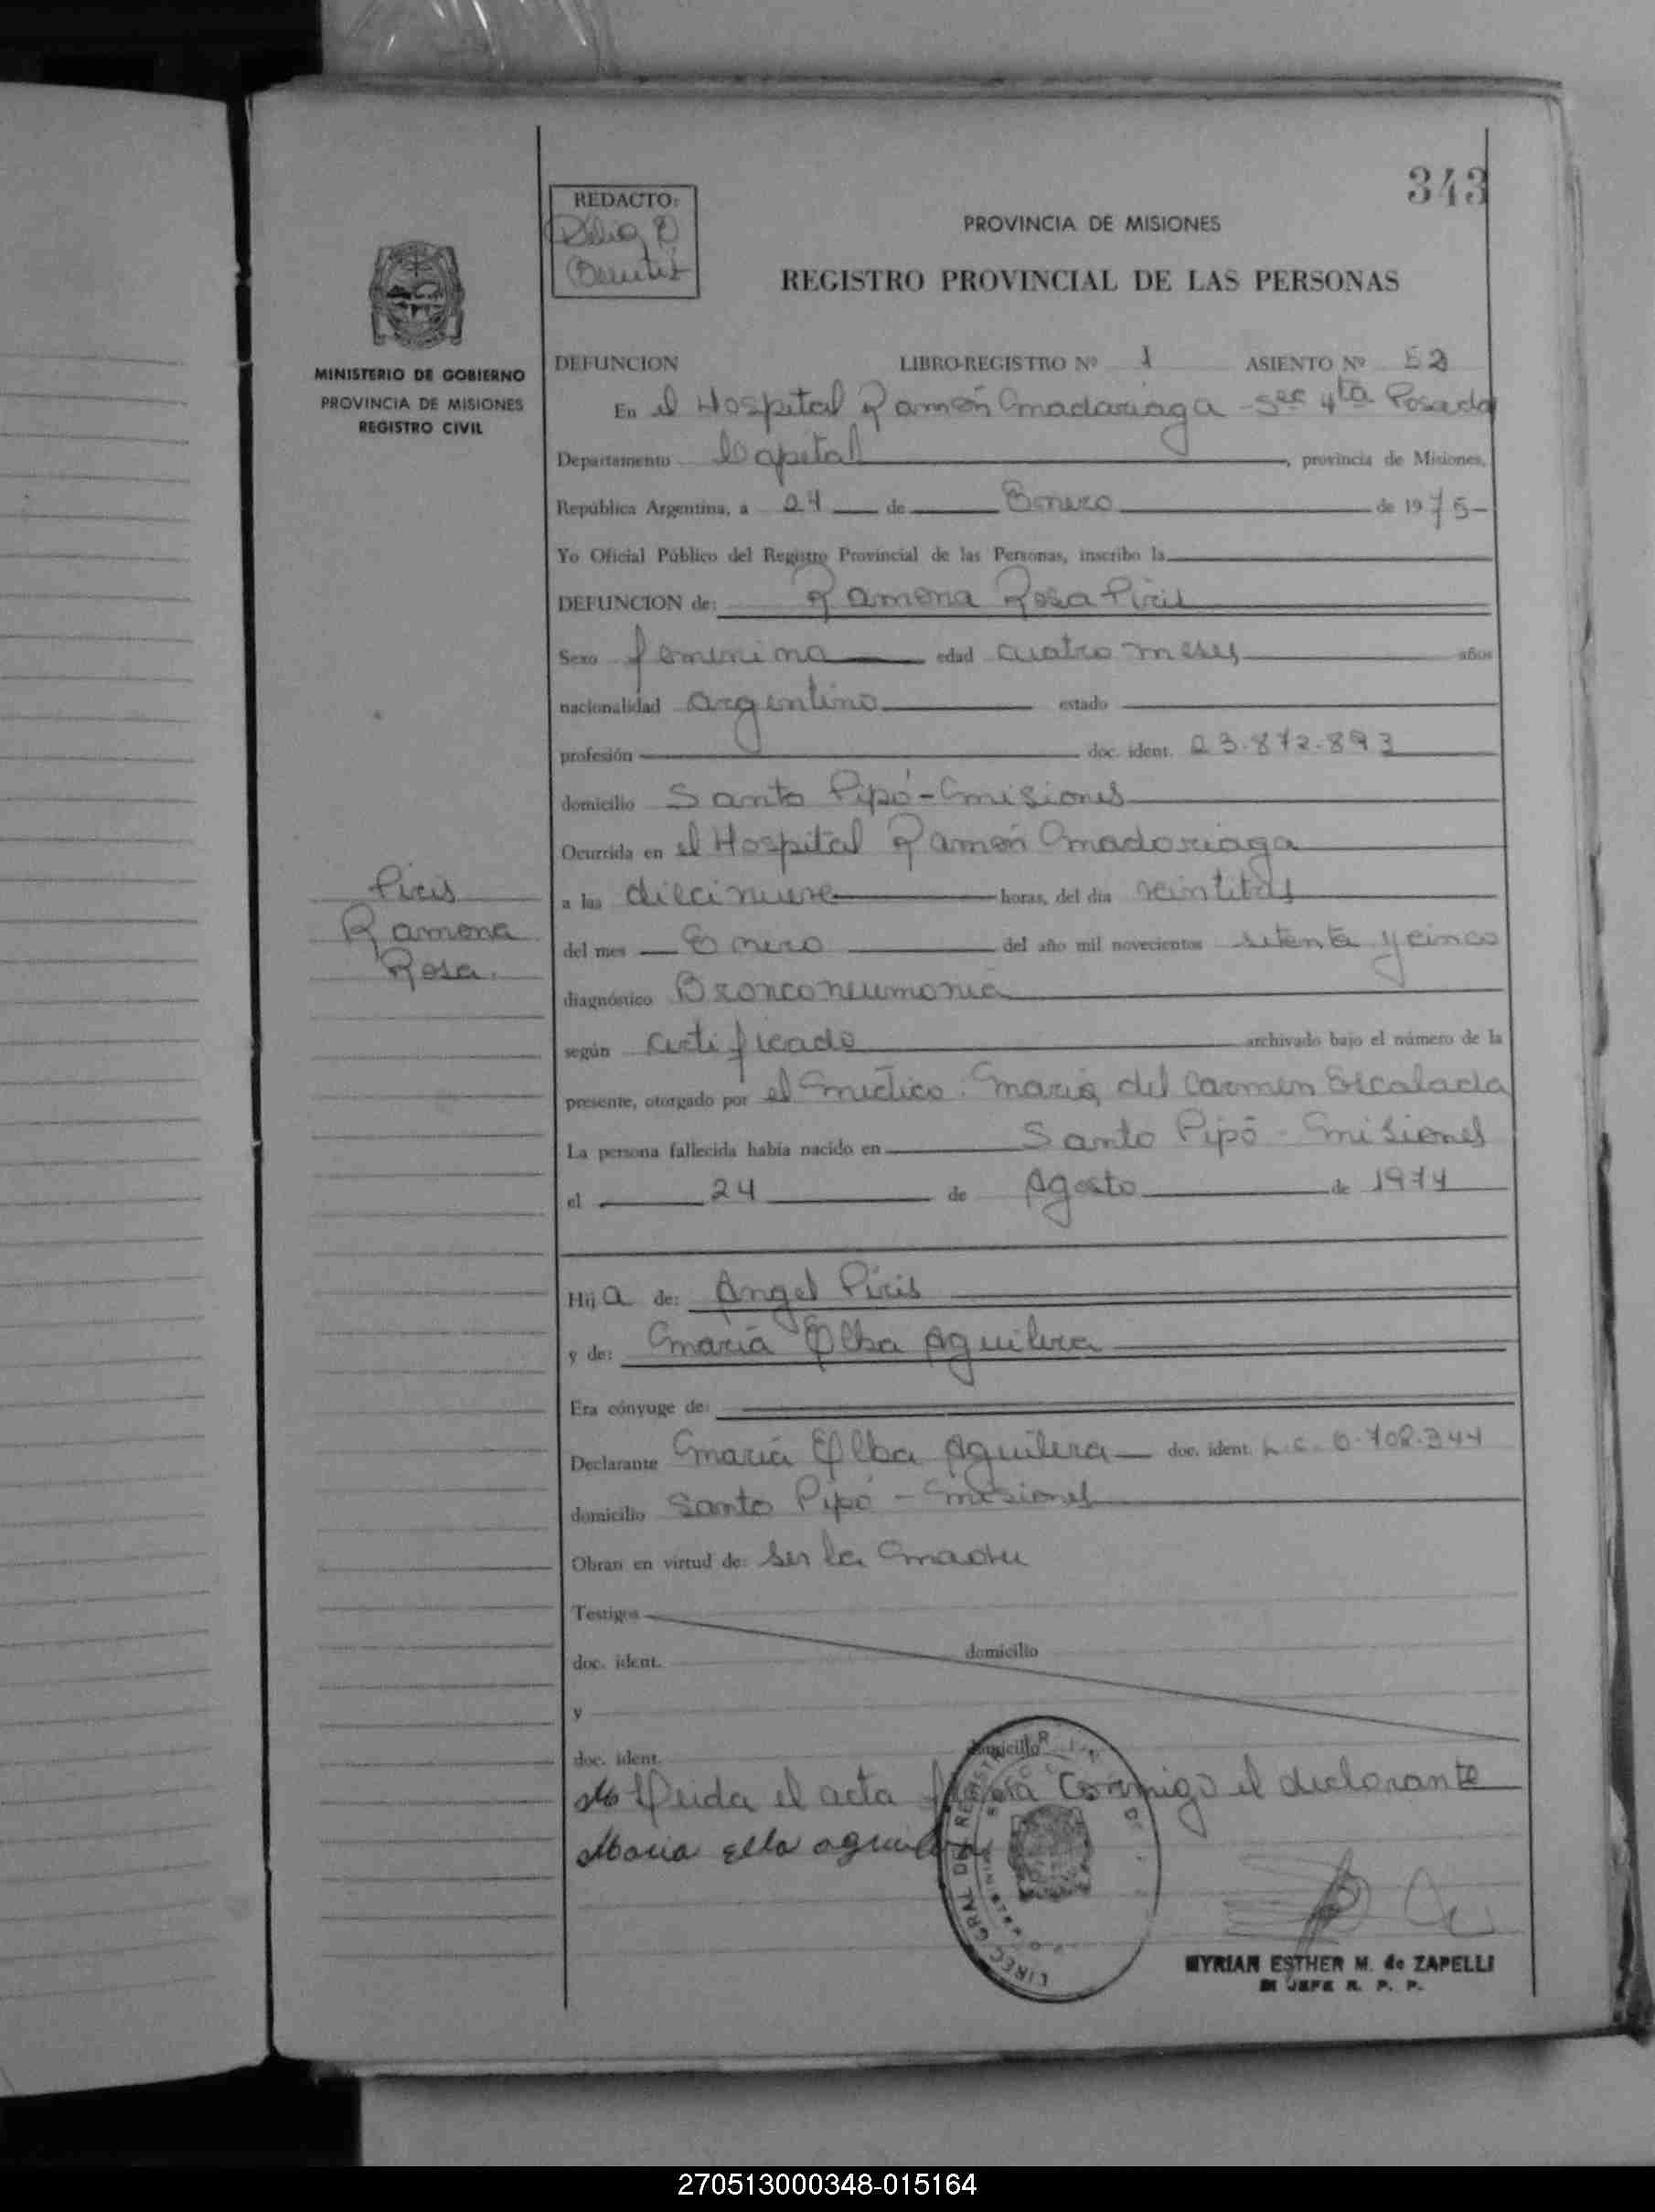 343
REDACTO:
PROVINCIA DE MISIONES
REGISTRO PROVINCIAL DE LAS PERSONAS
MINISTERIO DE GOBIERNO
PROVINCIA DE MISIONES
REGISTRO CIVIL
DEFUNCION LIBRO-REGISTRO Nº 1 ASIENTO Nº 52
En el Hospital Ramón Madariaga - sec 4ta Posadas
Departamento Capital, provincia de Misiones,
República Argentina, a 24 de Enero de 1975-
Yo Oficial Público del Registro Provincial de las Personas, inscribo la
DEFUNCION de: Ramona Rosa Piris
Sexo femenino edad cuatro meses años
nacionalidad argentino estado
profesión doc. ident. 23.872.893
domicilio Santo Pipó - Misiones
Ocurrida en el Hospital Ramón Madariaga
a las diecinueve horas, del día veintitrés
del mes Enero del año mil novecientos setenta y cinco
diagnóstico Bronconeumonia
según certificado archivado bajo el número de la
presente, otorgado por el médico. María del Carmen Escalada
La persona fallecida había nacido en Santo Pipó - Misiones
el 24 de Agosto de 1974
Piris
Ramona
Rosa.
Hija de: Angel Piris
y de: María Elba Aguilera
Era cónyuge de:
Declarante María Elba Aguilera doc. ident. L.C. 6.702.344
domicilio Santo Pipó - Misiones
Obran en virtud de: ser la madre
Testigos
doc. ident. domicilio
y
doc. ident. domicilio
Leida el acta firma conmigo el declarante
Maria Elba aguilera
MYRIAN ESTHER M. de ZAPELLI
JEFE R. P. P.
270513000348-015164